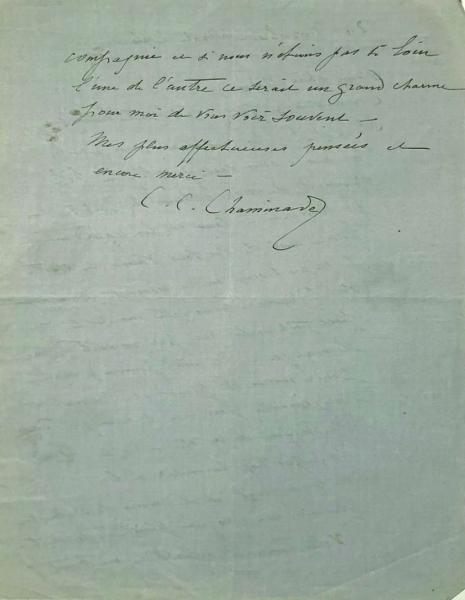 compagnie et si nous n'étions pas si loin
l'une de l'autre ce serait un grand charme
pour moi de vous voir souvent –
Mes plus affectueuses pensées et
encore merci –
C. C. Chaminade